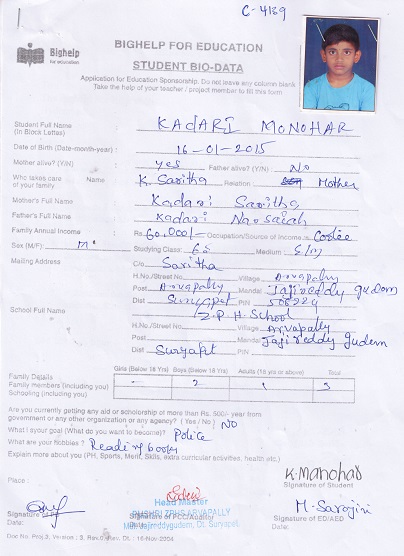 C-4139
Bighelp
for education
BIGHELP FOR EDUCATION
STUDENT BIO-DATA
Application for Education Sponsorship. Do not leave any column blank
Take the help of your teacher / project member to fill this form
Student Full Name
(In Block Letter) : KADARI MONOHAR
Date of Birth (Date-month-year) : 16-01-2015
Mother alive? (Y/N) : yes Father alive? (Y/N) : No
Who takes care of your family Name K. Saritha Relation : Mother
Mother's Full Name Kadari Saritha
Father's Full Name Kadari Narsaiah
Family Annual Income : Rs. 60,000/- Occupation/Source of Income is Coolie
Sex (M/F) : M Studying Class: Medium
Mailing Address C/o Saritha
H.No./Street No. Village Arvapally
Post Arvapally Mandal Jajireddy gudem
Dist Suryapet PIN
School Full Name Z.P.H. School
H.No./Street No. Village Arvapally
Post Mandal Jaji reddy gudem
Dist Suryapet PIN
Family Details Girls (Below 18 Yrs) Boys (Below 18 Yrs) Adults (18 yrs or above) Total
Family members (including you) - 2 1 3
Schooling (including you)
Are you currently getting any aid or scholarship of more than Rs. 500/- year from
government or any other organization or any agency? ( Yes / No ) NO
What is your goal (What do you want to become)? Police
What are your hobbies? Reading books
Explain more about you (PH, Sports, Merit, Skills, extra curricular activities, health etc.)
Place :
K. Manohar
Signature of Student
Head Master
ZPHS ARVAPALLY
Signature of PCC/Auditor
M. Sarojini
Signature of ED/AED
Date:
Date: